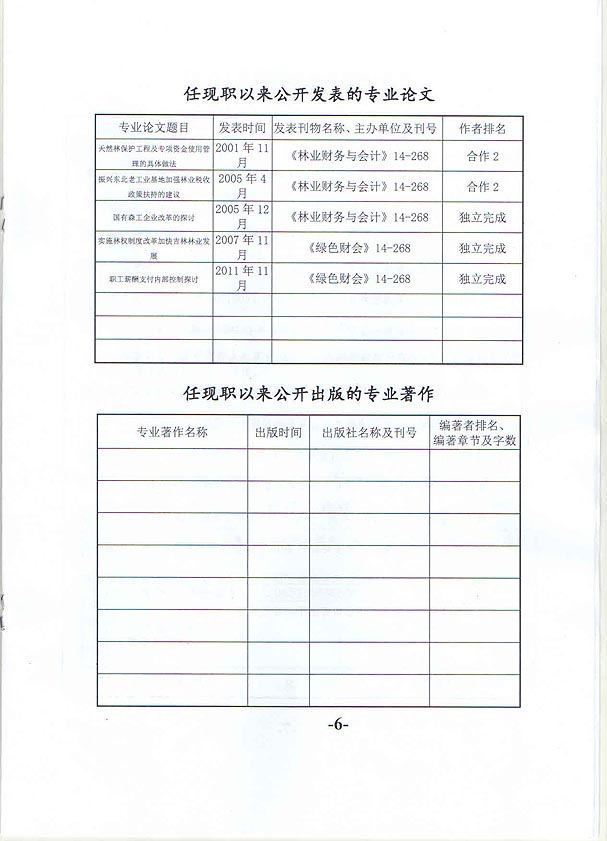 任现职以来公开发表的专业论文
专业论文题目 发表时间 发表刊物名称、主办单位及刊号 作者排名
天然林保护工程及专项资金使用管
理的具体做法
2001 年 11
月
《林业财务与会计》14-268
合作 2
振兴东北老工业基地加强林业税收
政策扶持的建议
2005 年 4
月
《林业财务与会计》14-268
合作 2
国有森工企业改革的探讨
2005 年 12
月
《林业财务与会计》14-268
独立完成
实施林权制度改革加快吉林林业发
展
2007 年 11
月
《绿色财会》14-268
独立完成
职工薪酬支付内部控制探讨
2011 年 11
月
《绿色财会》14-268
独立完成
任现职以来公开出版的专业著作
专业著作名称 出版时间 出版社名称及刊号
编著者排名、
编著章节及字数
-6-